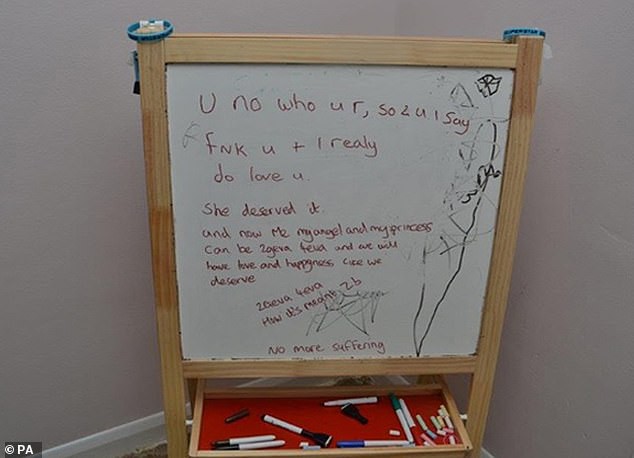 SUPERSTAR
U no who u r, so 2 u I say
fnk u + I realy
do love u.
She deserved it.
and now me my angel and my princess
can be 2geva 4eva and we will
have love and happyness like we
deserve
2geva 4eva
How its meant 2 b
NO more suffering
PA